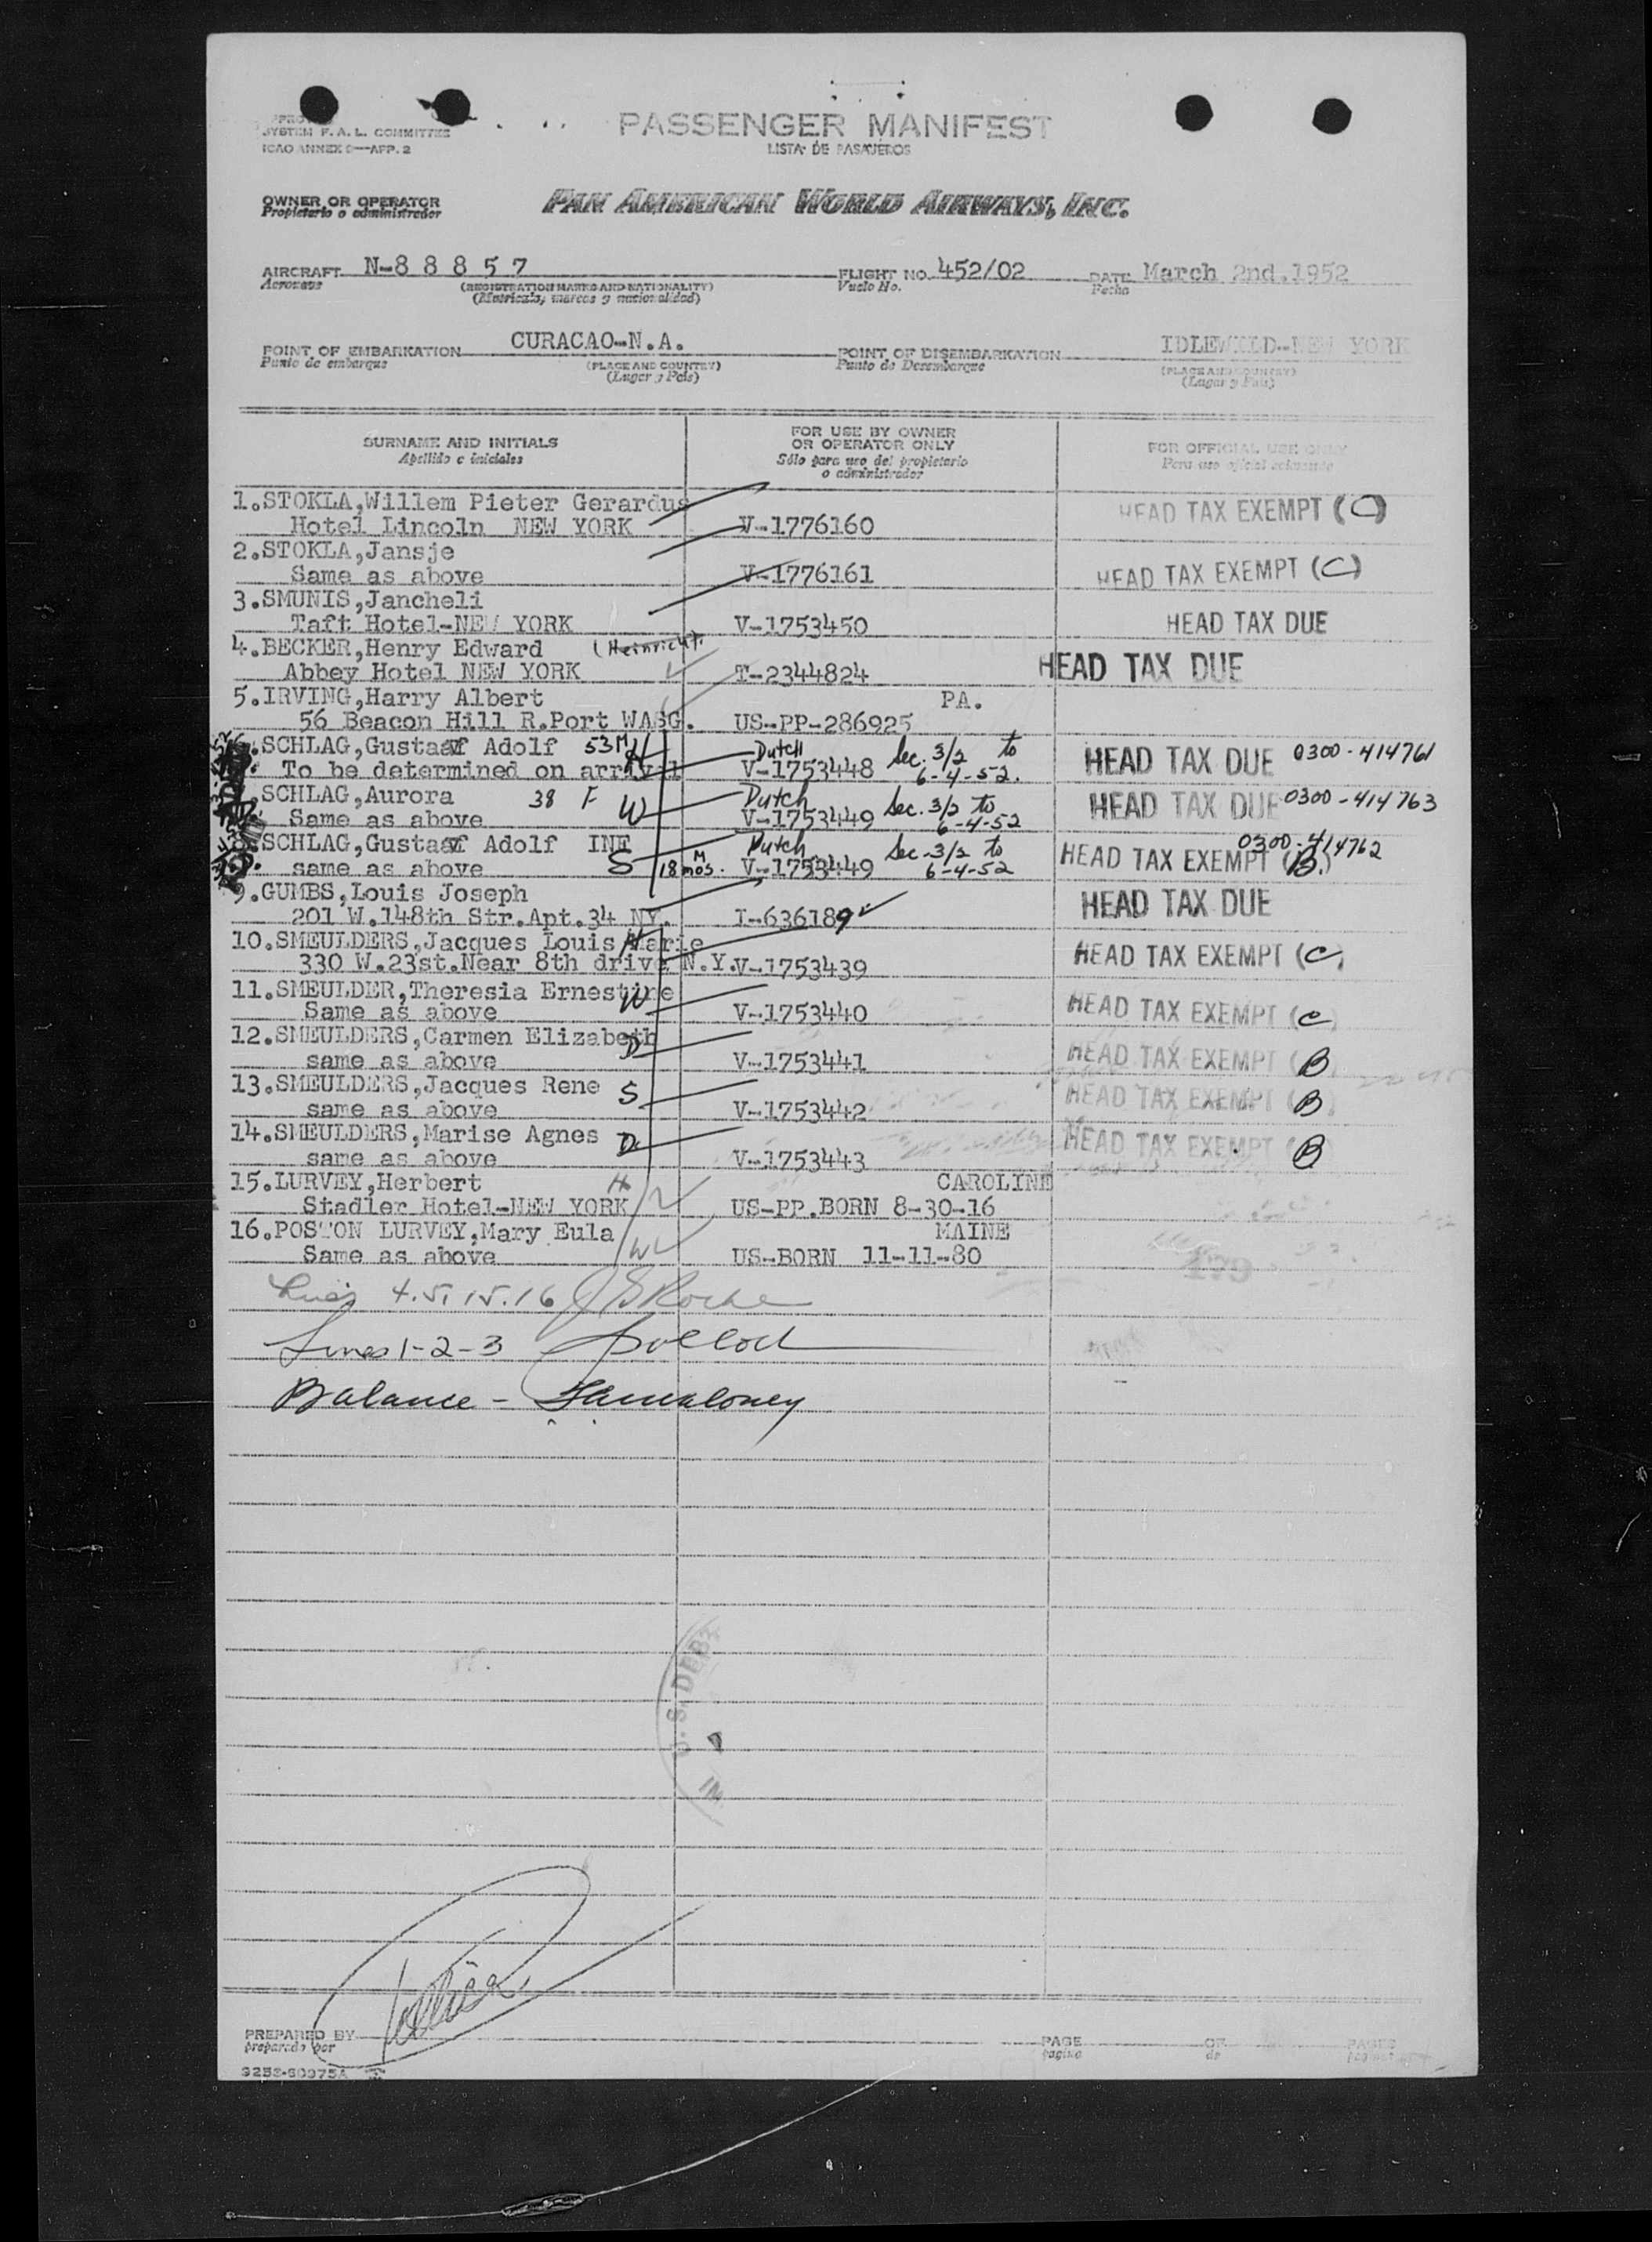 SYSTEM F.A.L. COMMITTEE
ICAO ANNEX 9—APP. 2
PASSENGER MANIFEST
LISTA DE PASAJEROS
OWNER OR OPERATOR
Propietario o administrador
PAN AMERICAN WORLD AIRWAYS, INC.
AIRCRAFT N-8 8 8 5 7 FLIGHT NO. 452/02 DATE March 2nd.1952
Aeronave (REGISTRATION MARKS AND NATIONALITY) Vuelo No. Fecha
(Matricula, marcas y nacionalidad)
POINT OF EMBARKATION CURACAO-N.A. POINT OF DISEMBARKATION IDLEWILD-NEW YORK
Punto de embarque (PLACE AND COUNTRY) Punto de Desembarque (PLACE AND COUNTRY)
(Lugar y Pais) (Lugar y Pais)
SURNAME AND INITIALS FOR USE BY OWNER OR OPERATOR ONLY FOR OFFICIAL USE ONLY
Apellido e iniciales Sólo para uso del propietario o administrador Para uso oficial solamente
1.STOKLA,Willem Pieter Gerardus
Hotel Lincoln NEW YORK V-1776160 HEAD TAX EXEMPT (C)
2.STOKLA,Jansje
Same as above V-1776161 HEAD TAX EXEMPT (C)
3.SMUNIS,Jancheli
Taft Hotel-NEW YORK V-1753450 HEAD TAX DUE
4.BECKER,Henry Edward (Heinrich)
Abbey Hotel NEW YORK T-2344824 HEAD TAX DUE
5.IRVING,Harry Albert PA.
56 Beacon Hill R.Port WASG. US-PP-286925
SCHLAG,Gustaaf Adolf 53 M H Dutch Sec. 3/2 to
To be determined on arrival V-1753448 6-4-52. HEAD TAX DUE 0300-414761
SCHLAG,Aurora 38 F W Dutch Sec. 3/2 to
Same as above V-1753449 6-4-52 HEAD TAX DUE 0300-414763
SCHLAG,Gustaaf Adolf INF S Dutch Sec-3/2 to 0300-414762
same as above 18 mos. M V-1753449 6-4-52 HEAD TAX EXEMPT (B.)
9.GUMBS,Louis Joseph
201 W.148th Str.Apt.34 NY. I-636189 HEAD TAX DUE
10.SMEULDERS,Jacques Louis Marie H
330 W.23st.Near 8th drive N.Y. V-1753439 HEAD TAX EXEMPT (C)
11.SMEULDER,Theresia Ernestine W
Same as above V-1753440 HEAD TAX EXEMPT (C)
12.SMEULDERS,Carmen Elizabeth D
same as above V-1753441 HEAD TAX EXEMPT (B)
13.SMEULDERS,Jacques Rene S
same as above V-1753442 HEAD TAX EXEMPT (B)
14.SMEULDERS,Marise Agnes D
same as above V-1753443 HEAD TAX EXEMPT (B)
15.LURVEY,Herbert H CAROLINE
Stadler Hotel-NEW YORK US-PP.BORN 8-30-16
16.POSTON LURVEY,Mary Eula W MAINE
Same as above US-BORN 11-11-80
4.5.15.16 Roche
Lines 1-2-3
Balance -
U. S. DEPT
IN
PREPARED BY PAGE OF PAGES
preparado por pagina de paginas